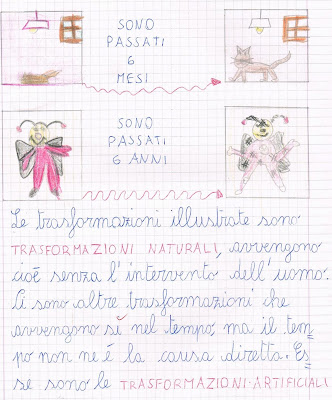 SONO
PASSATI
6
MESI
SONO
PASSATI
6 ANNI
Le trasformazioni illustrate sono
TRASFORMAZIONI NATURALI, avvengono
cioè senza l'intervento dell'uomo.
Ci sono altre trasformazioni che
avvengono sì nel tempo ma il tem
po non ne è la causa diretta. Es
se sono le TRASFORMAZIONI ARTIFICIALI